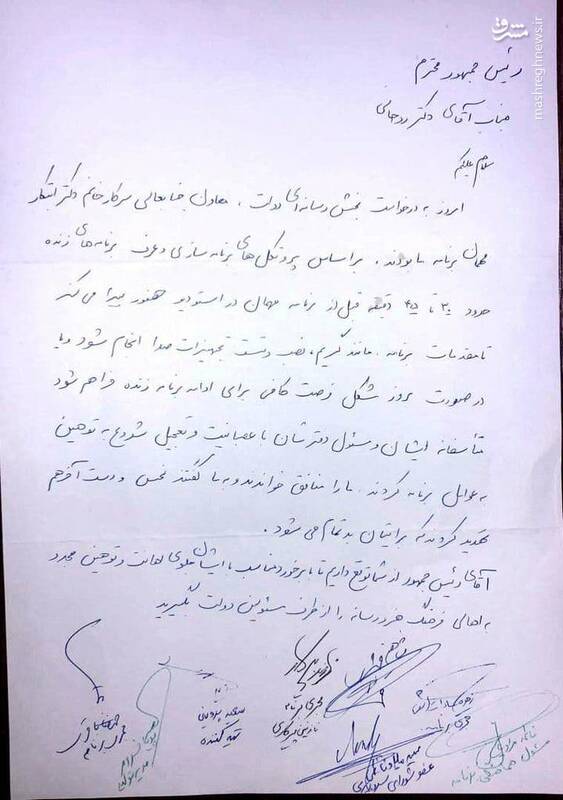 مشرق
mashreghnews.ir
رئیس جمهور محترم
جناب آقای دکتر روحانی
سلام علیکم
امروز به درخواست بخش رسانه‌ای دولت، معاون جنابعالی سرکار خانم دکتر ابتکار
مهمان برنامه ما بودند. براساس پروتکل‌های برنامه سازی و عرف برنامه‌های زنده
حدود ۳۰ تا ۴۵ دقیقه قبل از برنامه مهمان در استودیو حضور پیدا می‌کند
تا مقدمات برنامه مانند گریم، نصب و تست تجهیزات صدا انجام شود و یا
در صورت بروز مشکل فرصت کافی برای ادامه برنامه زنده فراهم شود
متأسفانه ایشان و مسئول دفترشان با عصبانیت و تعجیل شروع به توهین
به عوامل برنامه کردند. ما را منافق خواندند و به ما گفتند نجس و دست آخر هم
تهدید کردند که برایتان بد تمام می شود.
آقای رئیس جمهور از شما توقع داریم تا با برخورد مناسب با ایشان جلوی اهانت و توهین مجدد
به اهالی فرهنگ هنر و رسانه را از طرف مسئولین دولت بگیرید
مجری برنامه
تهیه کننده
عضو شورای سردبیری
مسئول هماهنگی برنامه